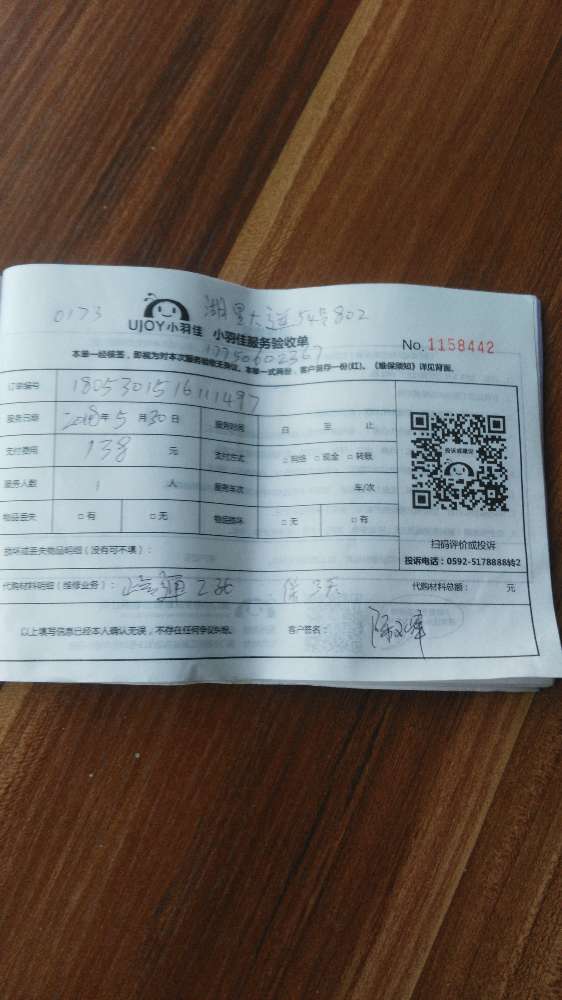 0173 湖里大道54号802
UJOY小羽佳 小羽佳服务验收单
17750602367
No.1158442
本单一经核签，即视为对本次服务验收无异议。本单一式两份，客户留存一份(红)。《维保须知》详见背面。
订单编号 1805301516111497
服务日期 2018年5月30日 服务时间 自 至 止
支付费用 138 元 支付方式 □网络 □现金 □转账
服务人数 1 人 服务车次 车/次
物品丢失 □有 □无 物品损坏 □无 □有
投诉或建议
扫码评价或投诉
投诉电话：0592-5178888转2
损坏或丢失物品明细（没有可不填）：
代购材料明细（维修业务）： 代购材料总额： 元
以上填写信息已经本人确认无误，不存在任何争议纠纷。 客户签名：